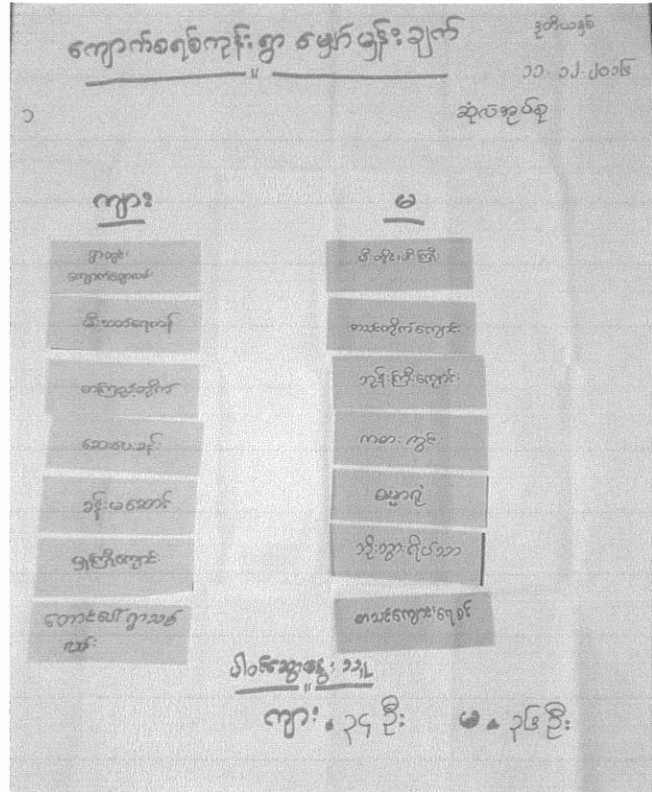 ကျောက်စရစ်ကုန်းရွာ မျှော်မှန်းချက်
ဒုတိယနှစ်
၁၁.၁၂.၂၀၁၆
၁
ဆုံလအုပ်စု
ကျား
မ
ရွာတွင်း
ကျောက်ချောလမ်း
မီးသတ်ရေကန်
စာကြည့်တိုက်
ဆေးပေးခန်း
ခန်းမဆောင်
မူကြိုကျောင်း
တောင်ပေါ်ရွာသစ်
လမ်း
စာသင်တိုက်ကျောင်း
ဘုန်းကြီးကျောင်း
ကစားကွင်း
ဓမ္မာရုံ
ဘိုးဘွားရိပ်သာ
စာသင်ကျောင်းရေစင်
ပါဝင်ဆွေးနွေးသူ
ကျား - ၃၄ ဦး
မ - ၃၆ ဦး